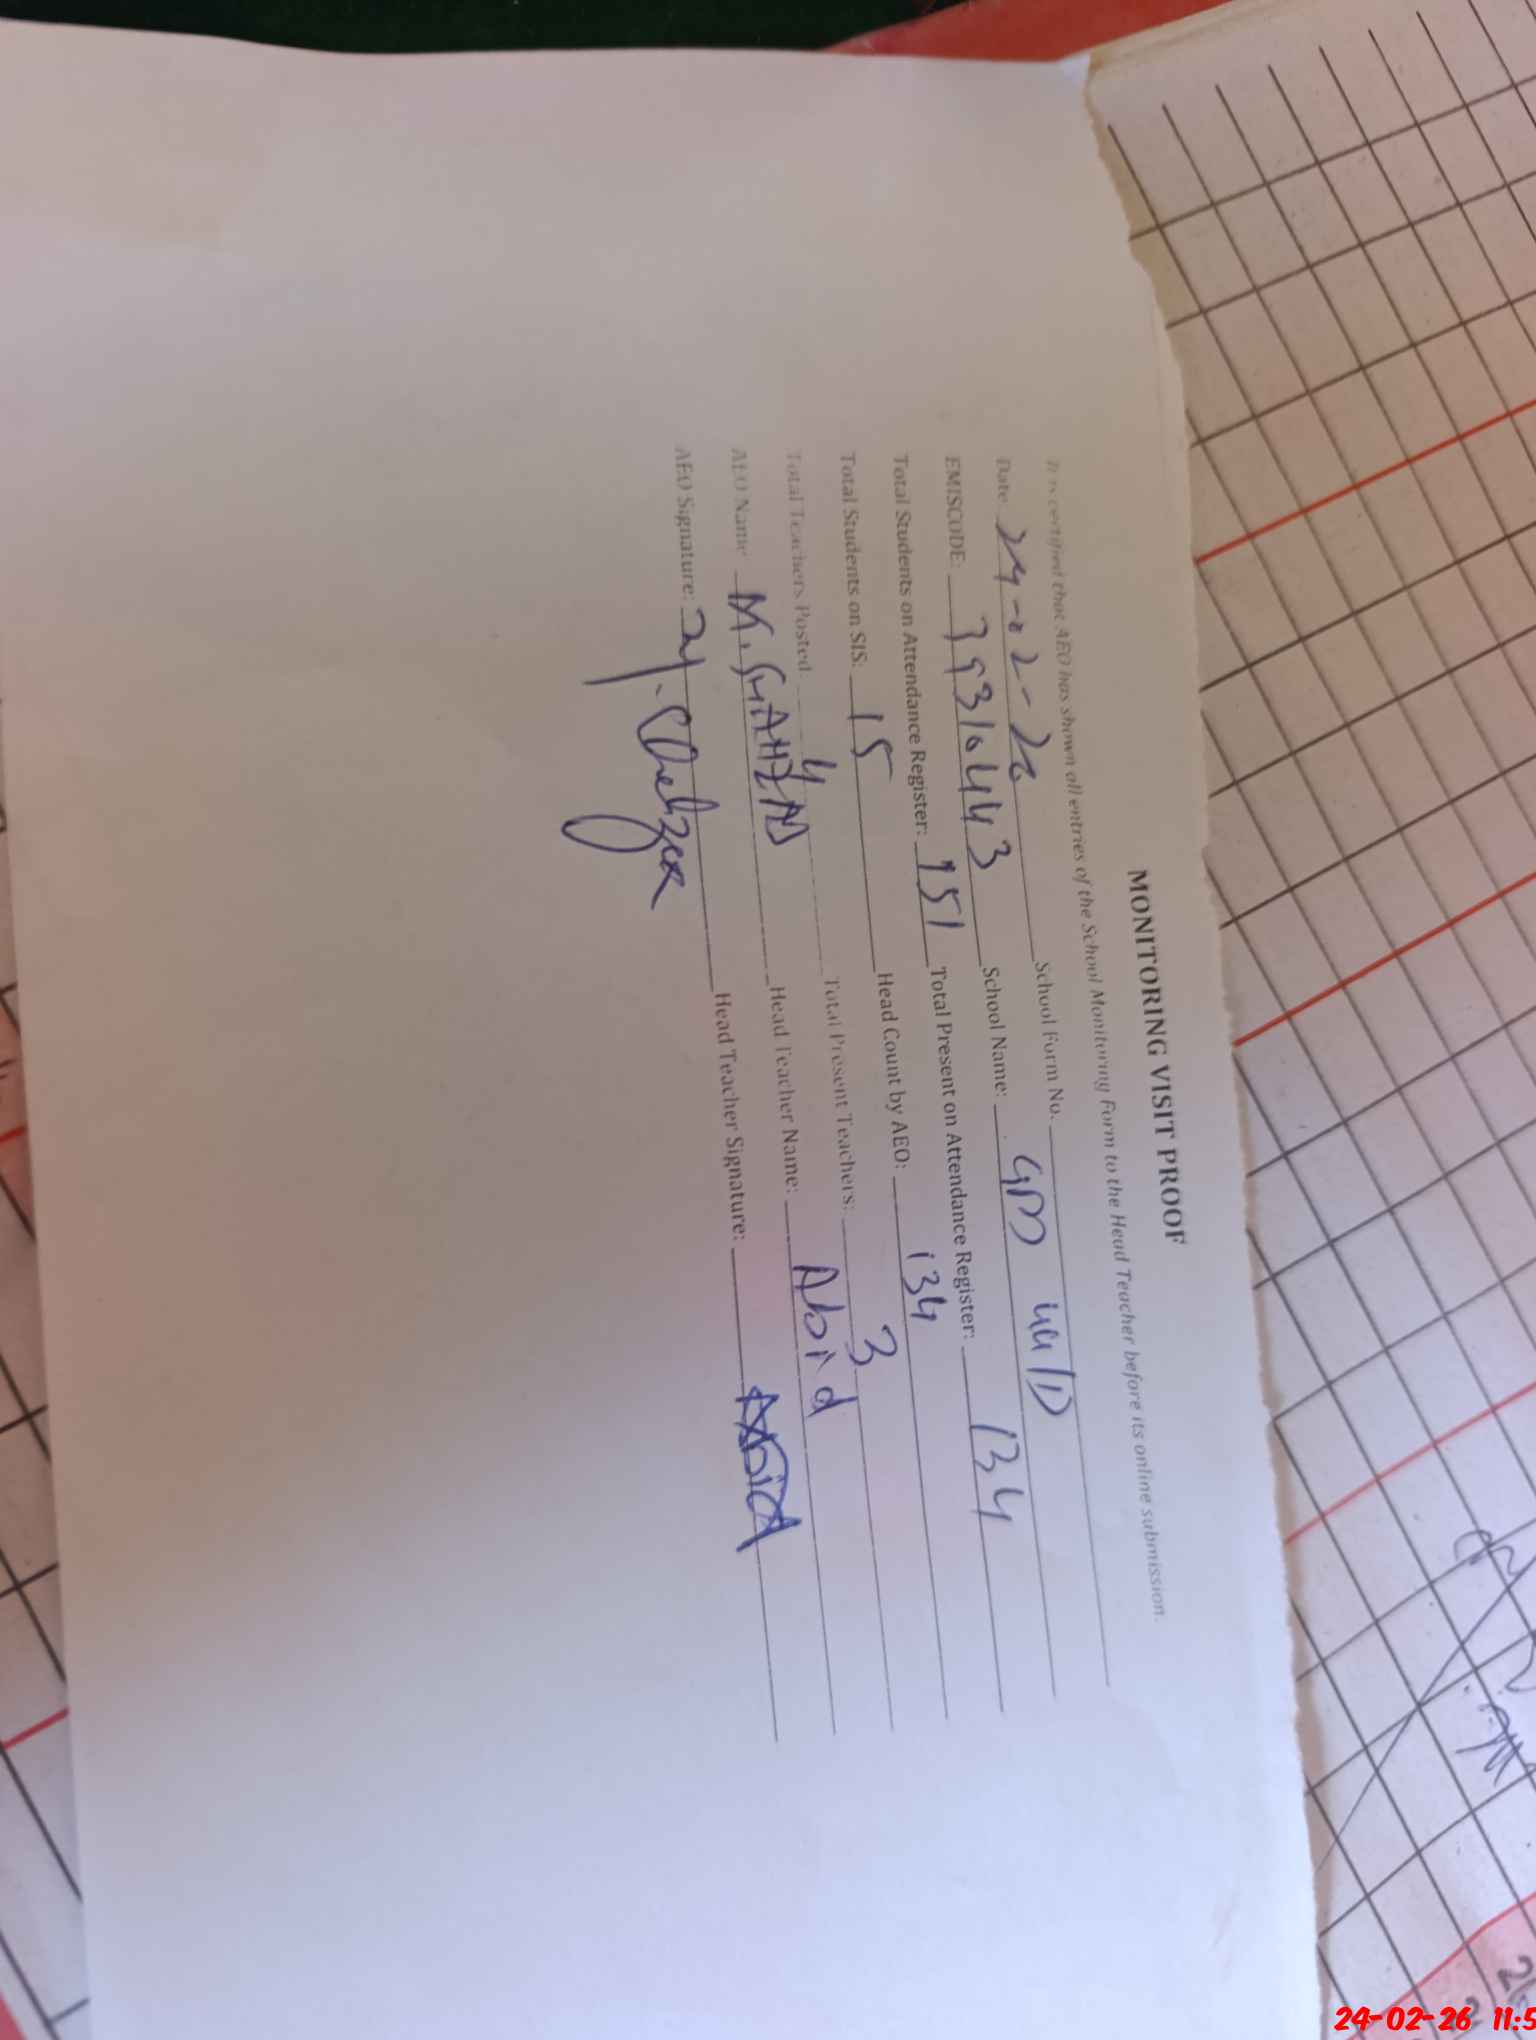 MONITORING VISIT PROOF
It is certified that AEO has shown all entries of the School Monitoring Form to the Head Teacher before its online submission.
Date 24-02-26 School Form No.
EMISCODE: 39310443 School Name: GPS 44/D
Total Students on Attendance Register: 151 Total Present on Attendance Register: 134
Total Students on SIS: 15 Head Count by AEO: 134
Total Teachers Posted: 4 Total Present Teachers: 3
AEO Name M. SHAHZAD Head Teacher Name: Abid
AEO Signature: Head Teacher Signature: Abid
24-02-26 11:5